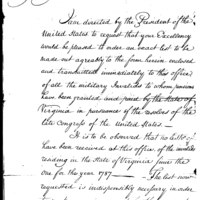 I am directed by the President of the
United States to request that your Excellency
would be pleased to order an exact list to be
made out agreeably to the form herein enclosed
and transmitted immediately to this office
of all the military Invalids to whom pensions
have been granted and paid by the State of
Virginia in pursuance of the resolves of the
late Congress of the United States.
It is to be observed that no lists
have been received at this office, of the invalids
residing in the State of Virginia since the
one for the year 1787 — The list now
requested is indispensibly necessary in order